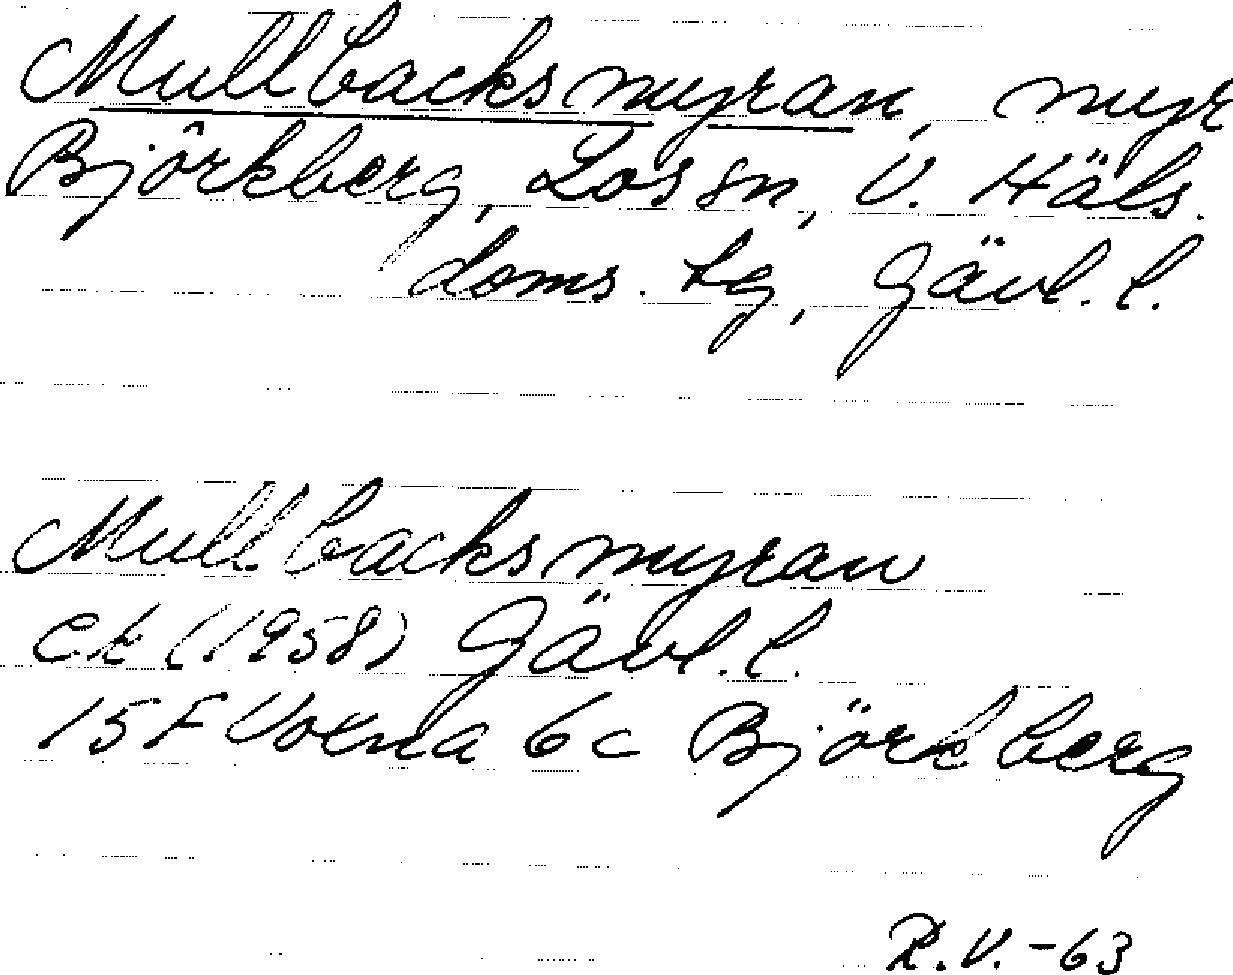 Mullbacksmyran, myr
Björkberg, Los sn, V. Häls.
doms. lg, Gävl. l.
Mullbacksmyran
ek (1958) Gävl. l.
15 F Voxna 6 c Björkberg
R.V. -63